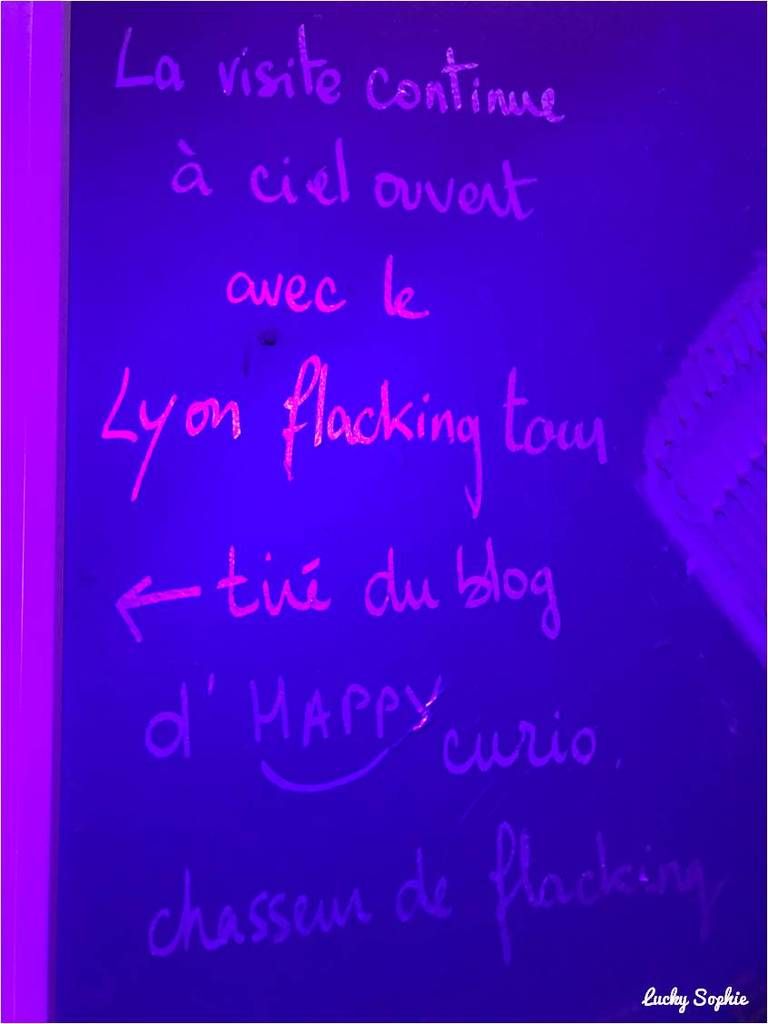 La visite continue
à ciel ouvert
avec le
Lyon flacking tour
← tiré du blog
d'HAPPY curio.
chasseur de flacking
Lucky Sophie